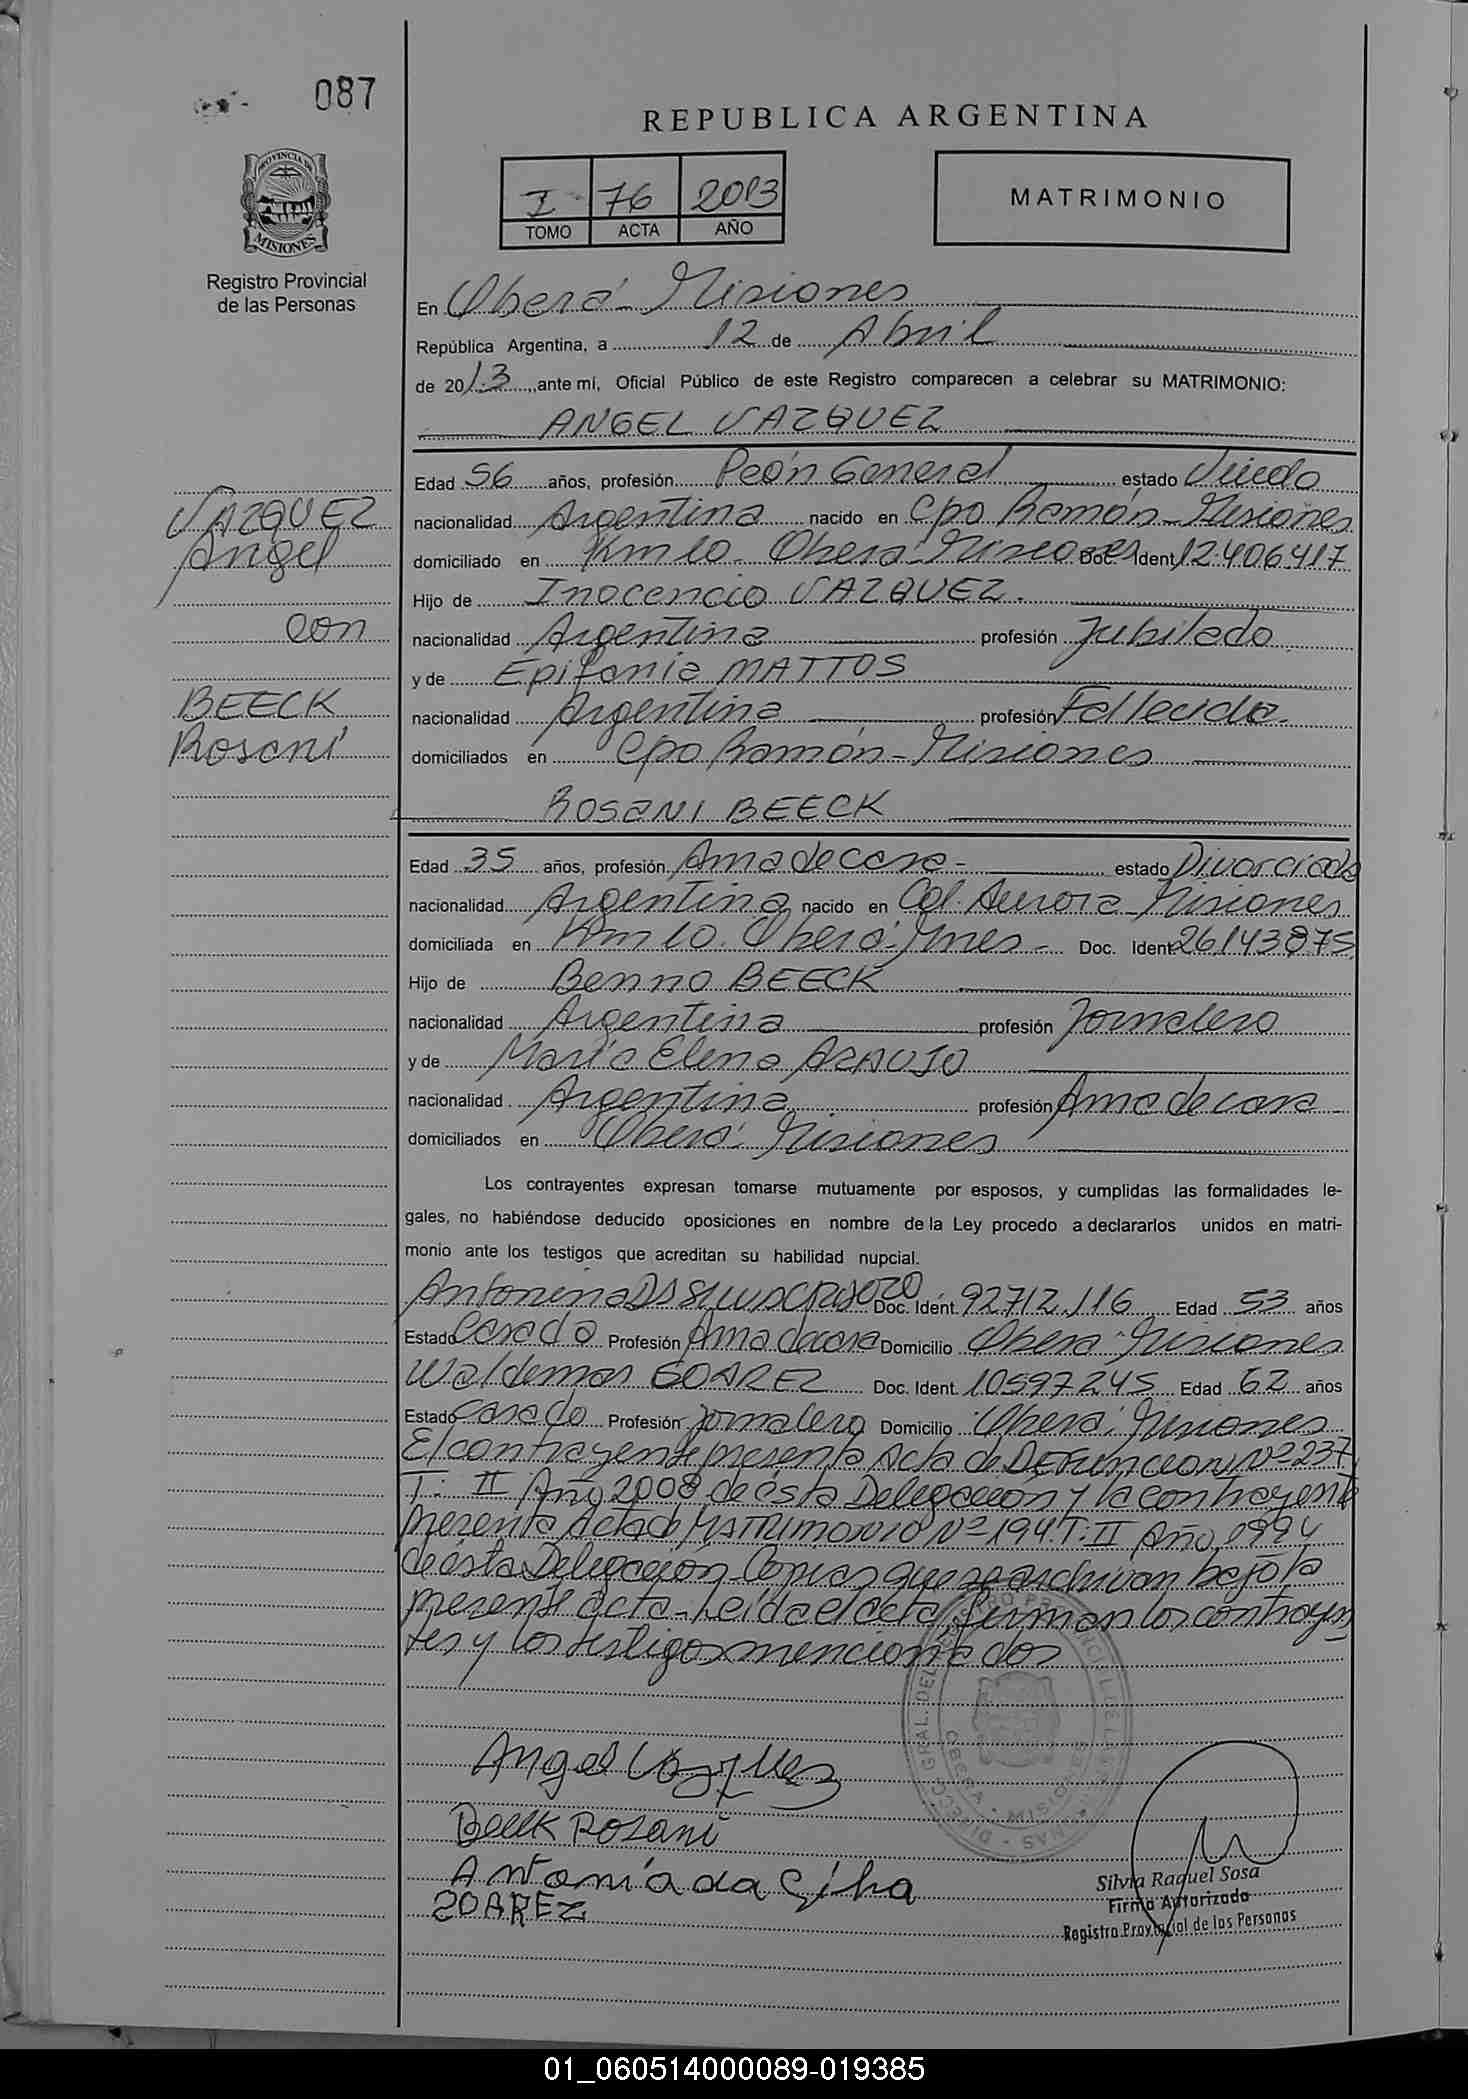 087
REPUBLICA ARGENTINA
I 76 2013
TOMO ACTA AÑO
MATRIMONIO
PROVINCIA DE MISIONES
Registro Provincial
de las Personas
En Oberá - Misiones
República Argentina, a 12 de Abril
de 2013, ante mí, Oficial Público de este Registro comparecen a celebrar su MATRIMONIO:
ANGEL VAZQUEZ
Edad 56 años, profesión Peón General estado Viudo
nacionalidad Argentina nacido en Cpo Ramón - Misiones
domiciliado en Km 10 - Oberá - Misiones Doc. Ident 12.406.417
Hijo de Inocencio VAZQUEZ.
nacionalidad Argentina profesión Jubilado
y de Epifania MATTOS
nacionalidad Argentina profesión Fallecida
domiciliados en Cpo Ramón - Misiones
VAZQUEZ
Angel
con
BEECK
Rosani
ROSANI BEECK
Edad 35 años, profesión Ama de casa - estado Divorciada
nacionalidad Argentina nacido en Col. Aurora - Misiones
domiciliada en Km 10. Oberá - Mnes - Doc. Ident 26.143.875
Hijo de Benno BEECK
nacionalidad Argentina profesión Jornalero
y de María Elena ARAUJO
nacionalidad Argentina profesión Ama de casa -
domiciliados en Oberá - Misiones
Los contrayentes expresan tomarse mutuamente por esposos, y cumplidas las formalidades le-
gales, no habiéndose deducido oposiciones en nombre de la Ley procedo a declararlos unidos en matri-
monio ante los testigos que acreditan su habilidad nupcial.
Doc. Ident. 92712.116 Edad 53 años
Estado Casada Profesión Ama de casa Domicilio Oberá - Misiones
Waldemar SOAREZ Doc. Ident. 10597245 Edad 62 años
Estado Casado Profesión Jornalero Domicilio Oberá - Misiones
El contrayente presenta Acta de DEFUNCION Nº 237
T: II Año 2008 de ésta Delegación y la contrayente
presenta Acta de MATRIMONIO Nº 194 T: II Año 1994
de ésta Delegación Copias que se archivan bajo la
presente acta - Leída el acta, firman los contrayen
tes y los testigos mencionados
Angel Vazquez
Beeck Rosani
Antonia da Silva
SOAREZ
Silvia Raquel Sosa
Firma Autorizada
Registro Provincial de las Personas
01_060514000089-019385